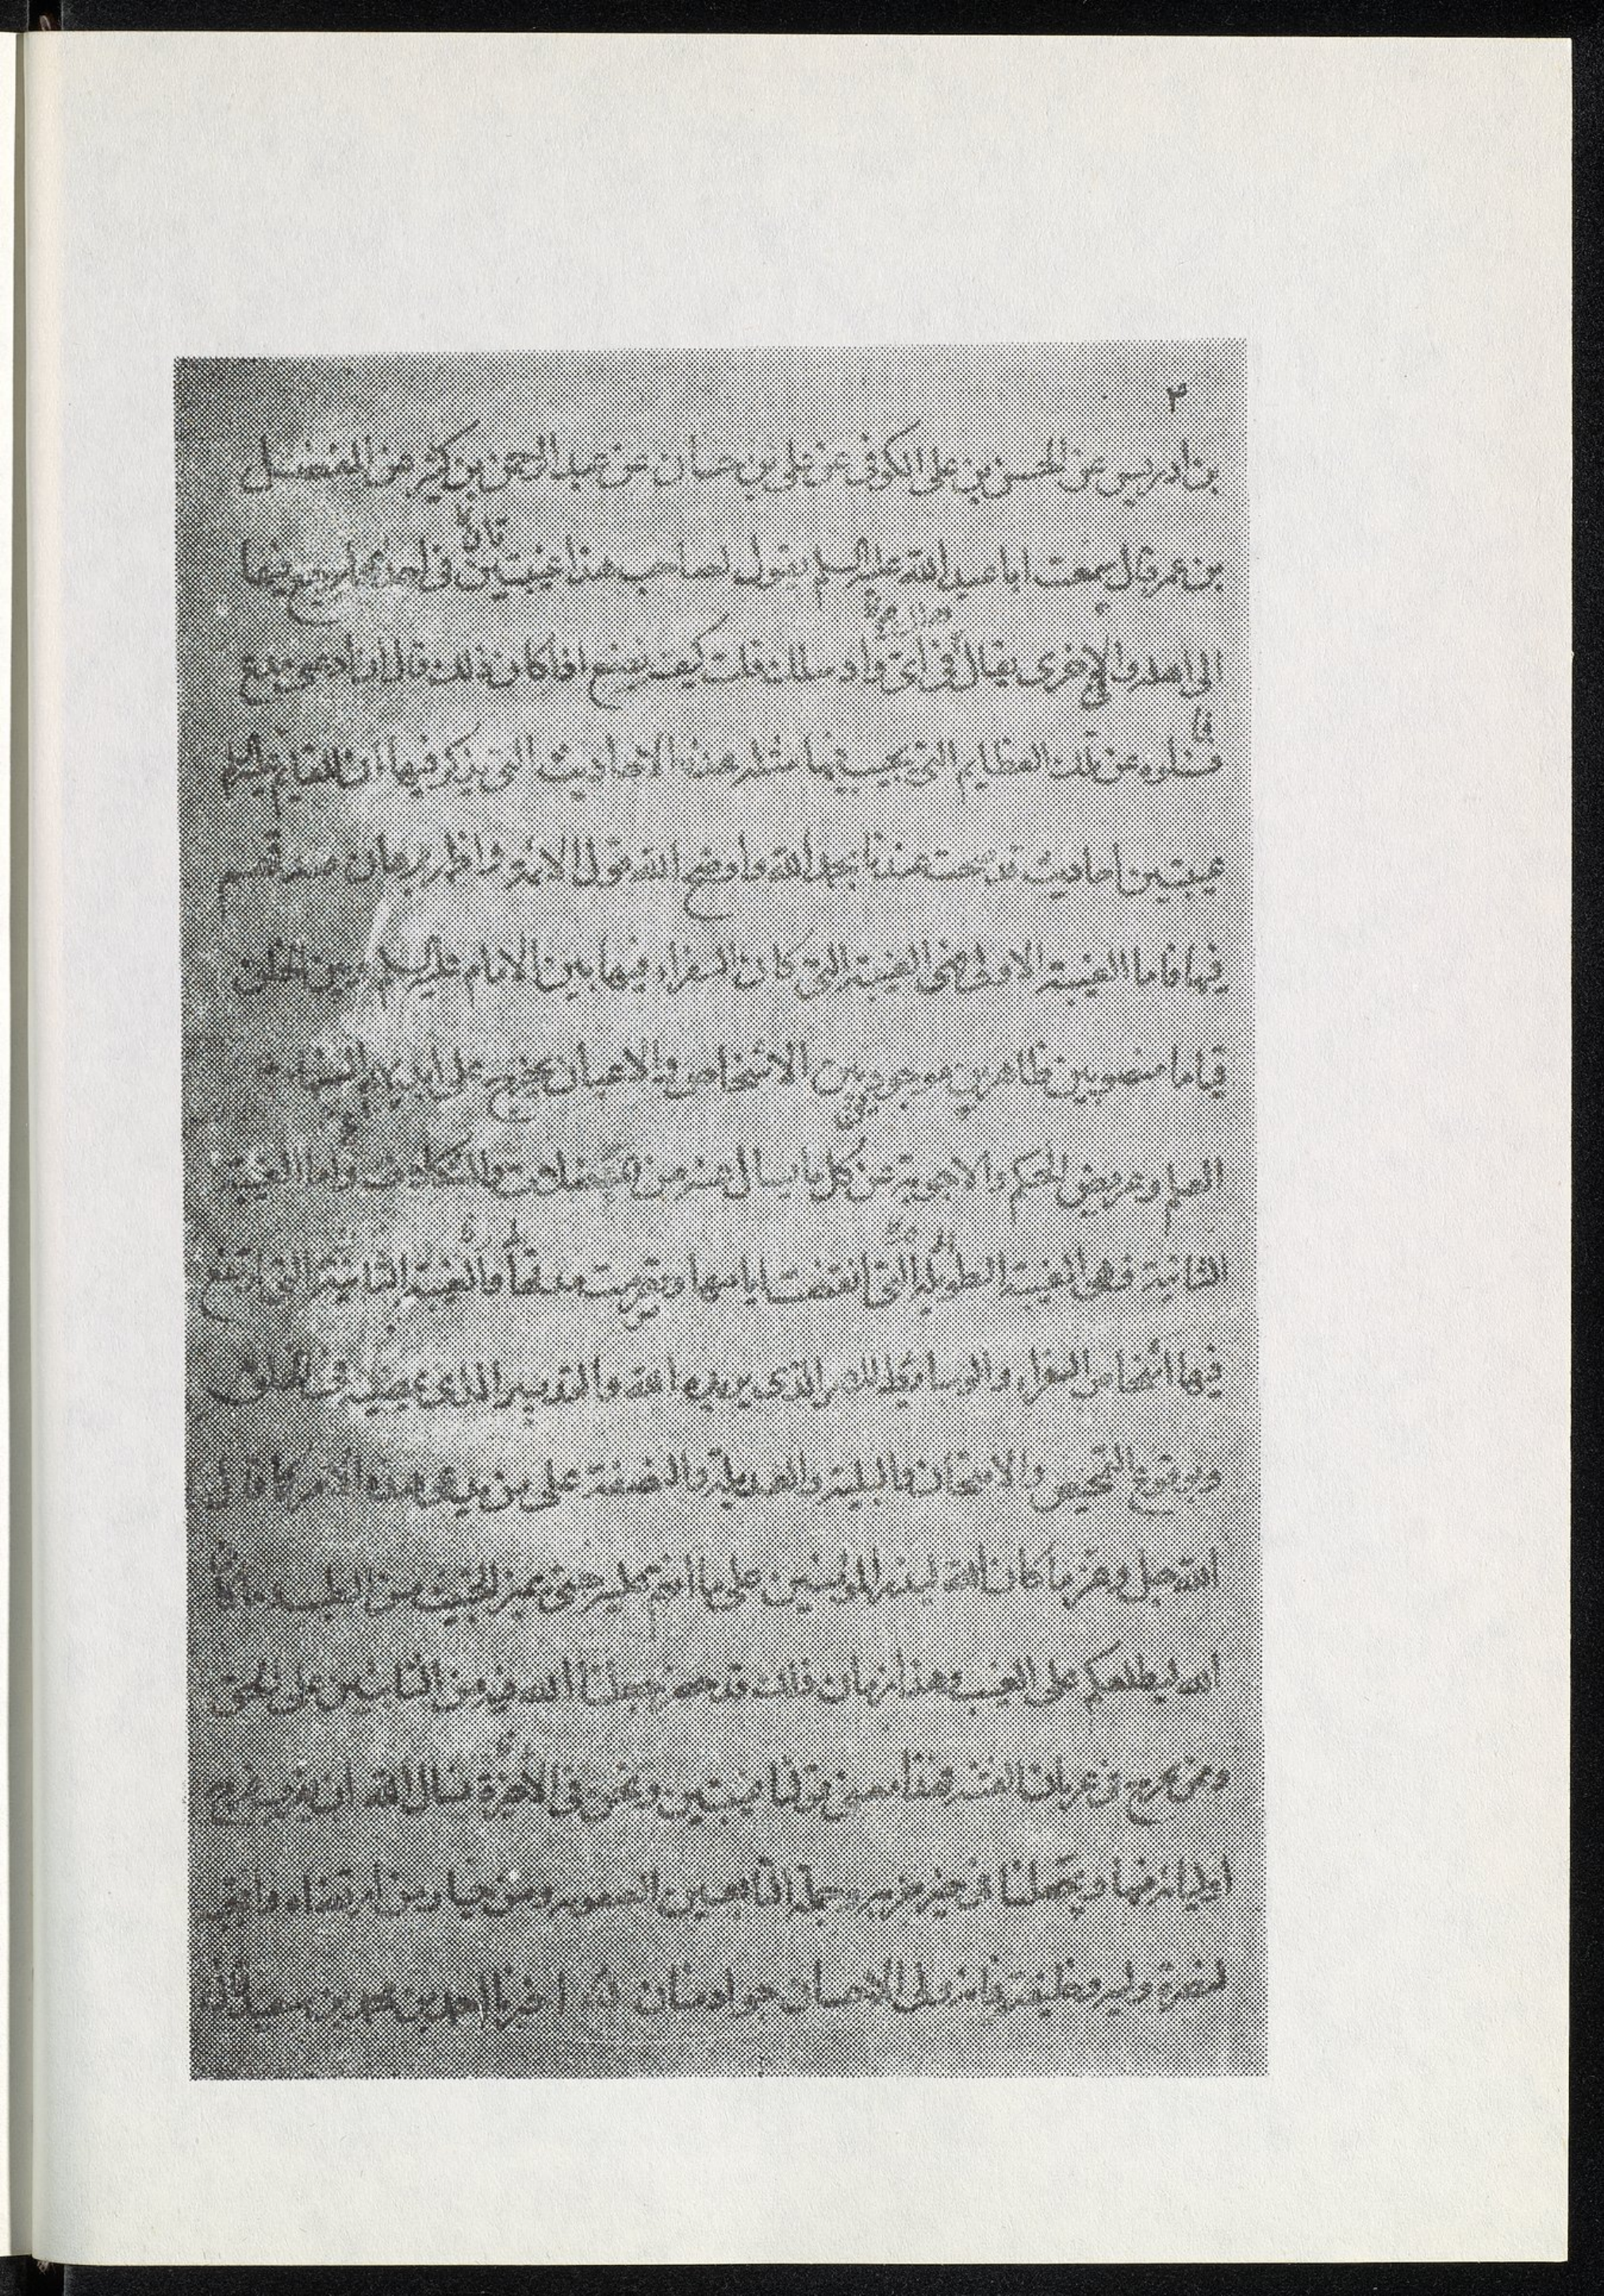 ٣
بن ادريس عن الحسن بن علي الكوفي عن علي بن حسان عن عبد الرحمن بن كثير عن المفضل
بن عمر قال سمعت ابا عبد الله عليه السلم يقول لصاحب هذا غيبتين في احديهما يرجع فيها
الى اهله والاخرى يقال في اي واد سلك قلت كيف نصنع اذا كان ذلك قال ان ادعى مدع
فسلوه عن تلك العظايم التي يجيب فيها مثله هذه الاحاديث التي يذكر فيها ان للقايم عليه السلم
غيبتين احاديث قد صحت عندنا بحمد الله واوضح الله قول الائمة واظهر برهان صدقهم
فيها فاما الغيبة الاولى فهي الغيبة التي كان السفراء فيها بين الامام عليه السلم وبين الخلق
قياما منصوبين ظاهرين موجودين الاشخاص والاعيان يخرج على ايديهم الشفاء من
العلم وعويص الحكم والاجوبة عن كل ما يسال عنه من المعضلات والمشكلات واما الغيبة
الثانية فهي الغيبة الطويلة التي انقضت ايامها وتصرمت مدتها والغيبة الثانية هي التي ارتفع
فيها اشخاص السفراء والوسائط للامر الذي يريده الله والتدبير الذي يمضيه في الخلق
وبوقوع التمحيص والامتحان والبلية والغربلة والتصفية على من يدعي هذا الامر كما قال
الله جل وعز ما كان الله ليذر المؤمنين على ما انتم عليه حتى يميز الخبيث من الطيب وما كان
الله ليطلعكم على الغيب وهذا زمان ذلك قد حضر جعلنا الله فيه من الثابتين على الحق
وممن لا يخرج في غربال الفتنة فهذا معنى قولنا غيبتين ونحن في الاخيرة نسال الله ان يقرب فرج
اوليائه منها ويجعلنا في حيز خيرته وجملة التابعين لصفوته ومن خيار من ارتضاه وانتجبه
لنصرة وليه وخليفته فانه ولي الاحسان جواد منان اخبرنا احمد بن محمد بن سعيد